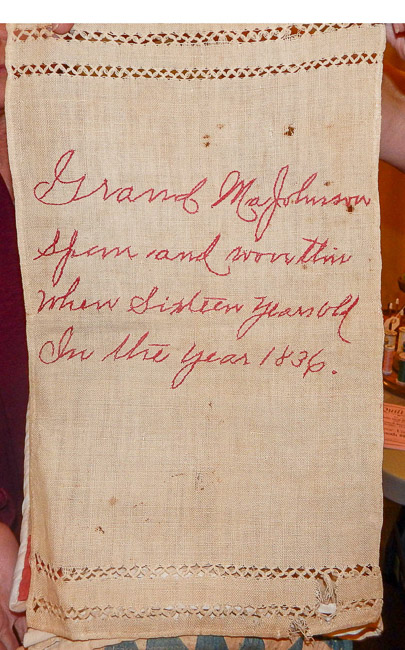 Grand Ma Johnson
spun and wove this
when Sixteen years old
In the year 1836.